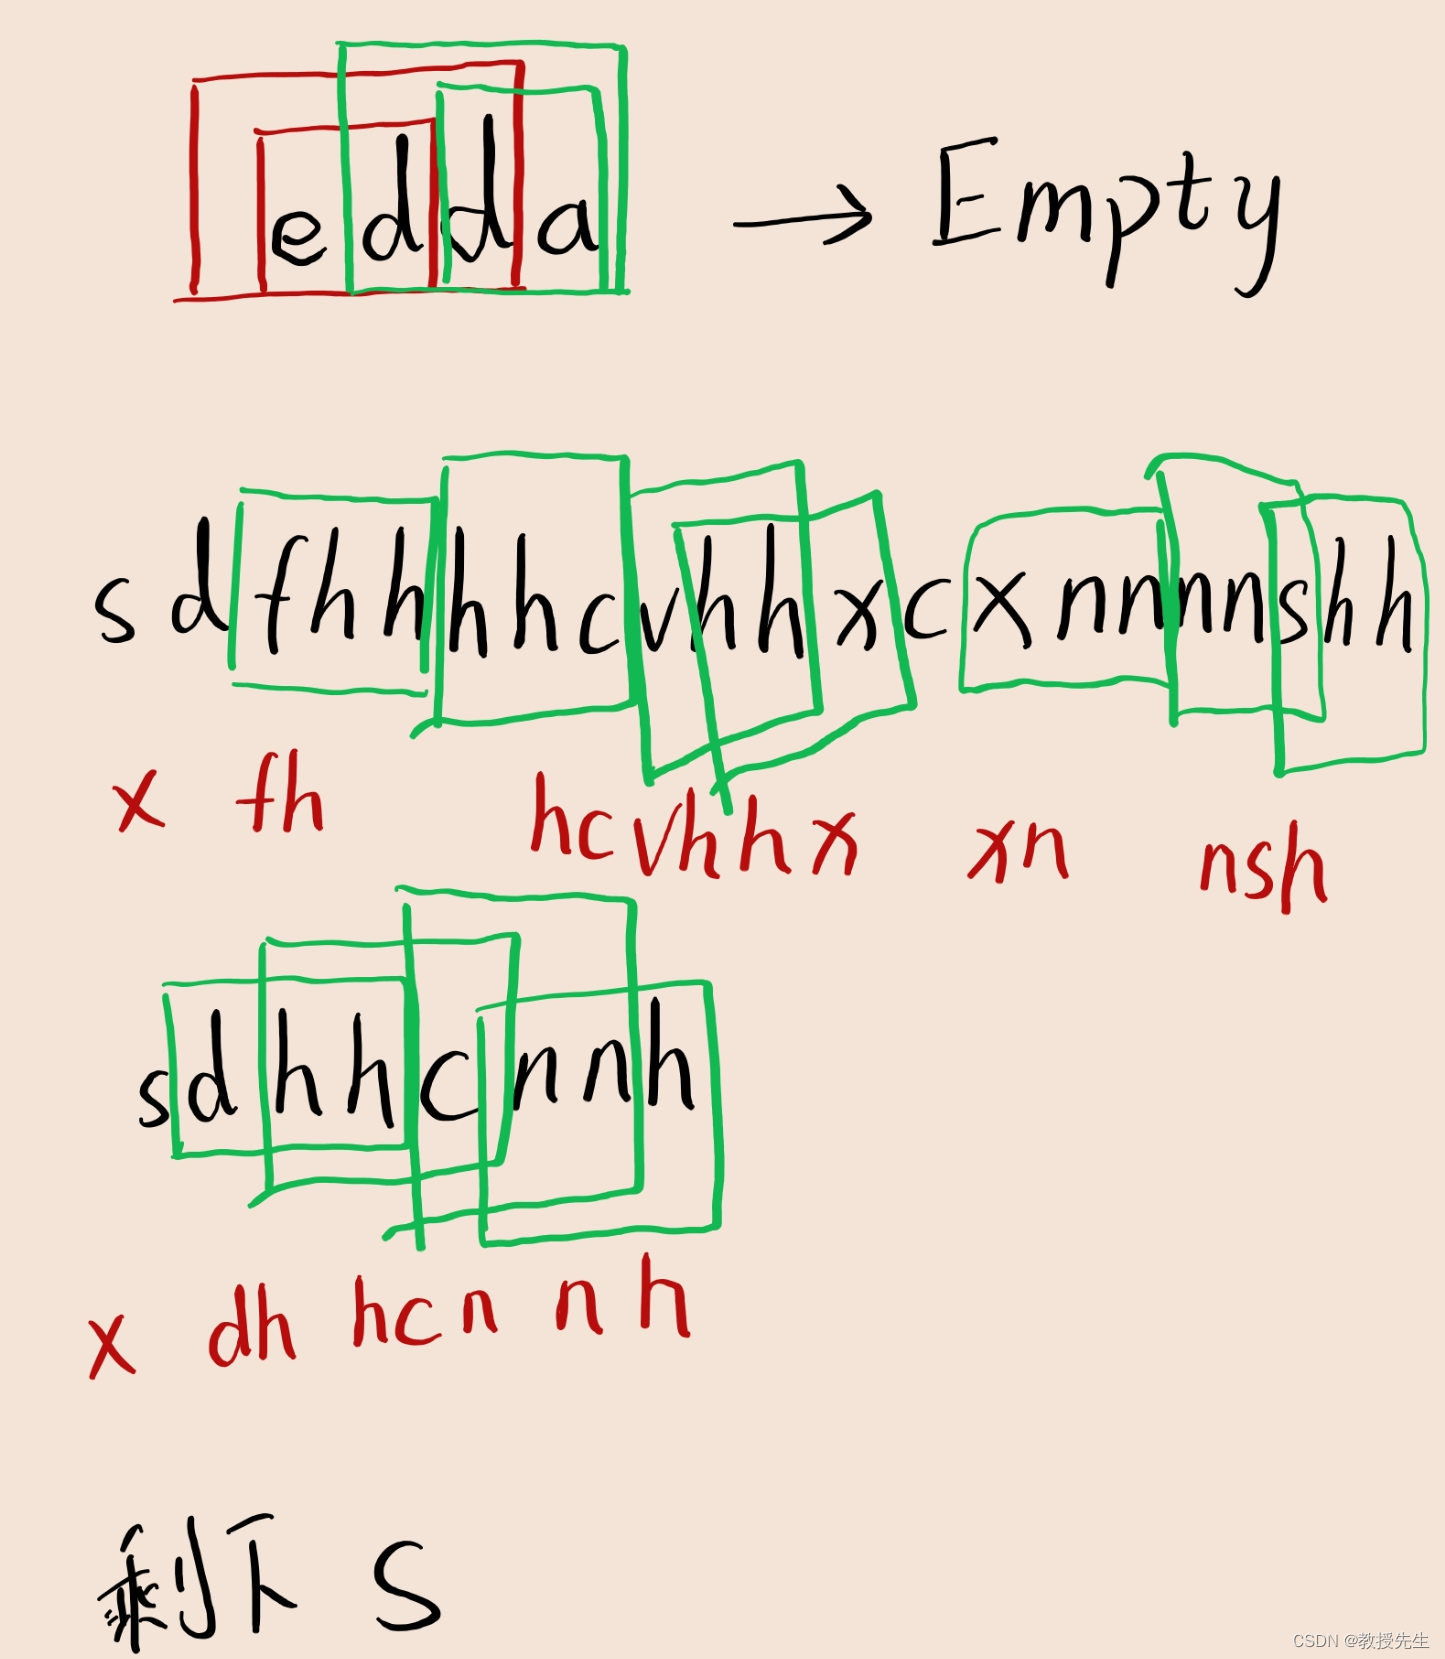 edda → Empty
sdfhhhhcvhhxcxnnnnshh
x fh hcvhhx xn nsh
sdhhcnnh
x dh hcn nh
剩下 S
CSDN @教授先生